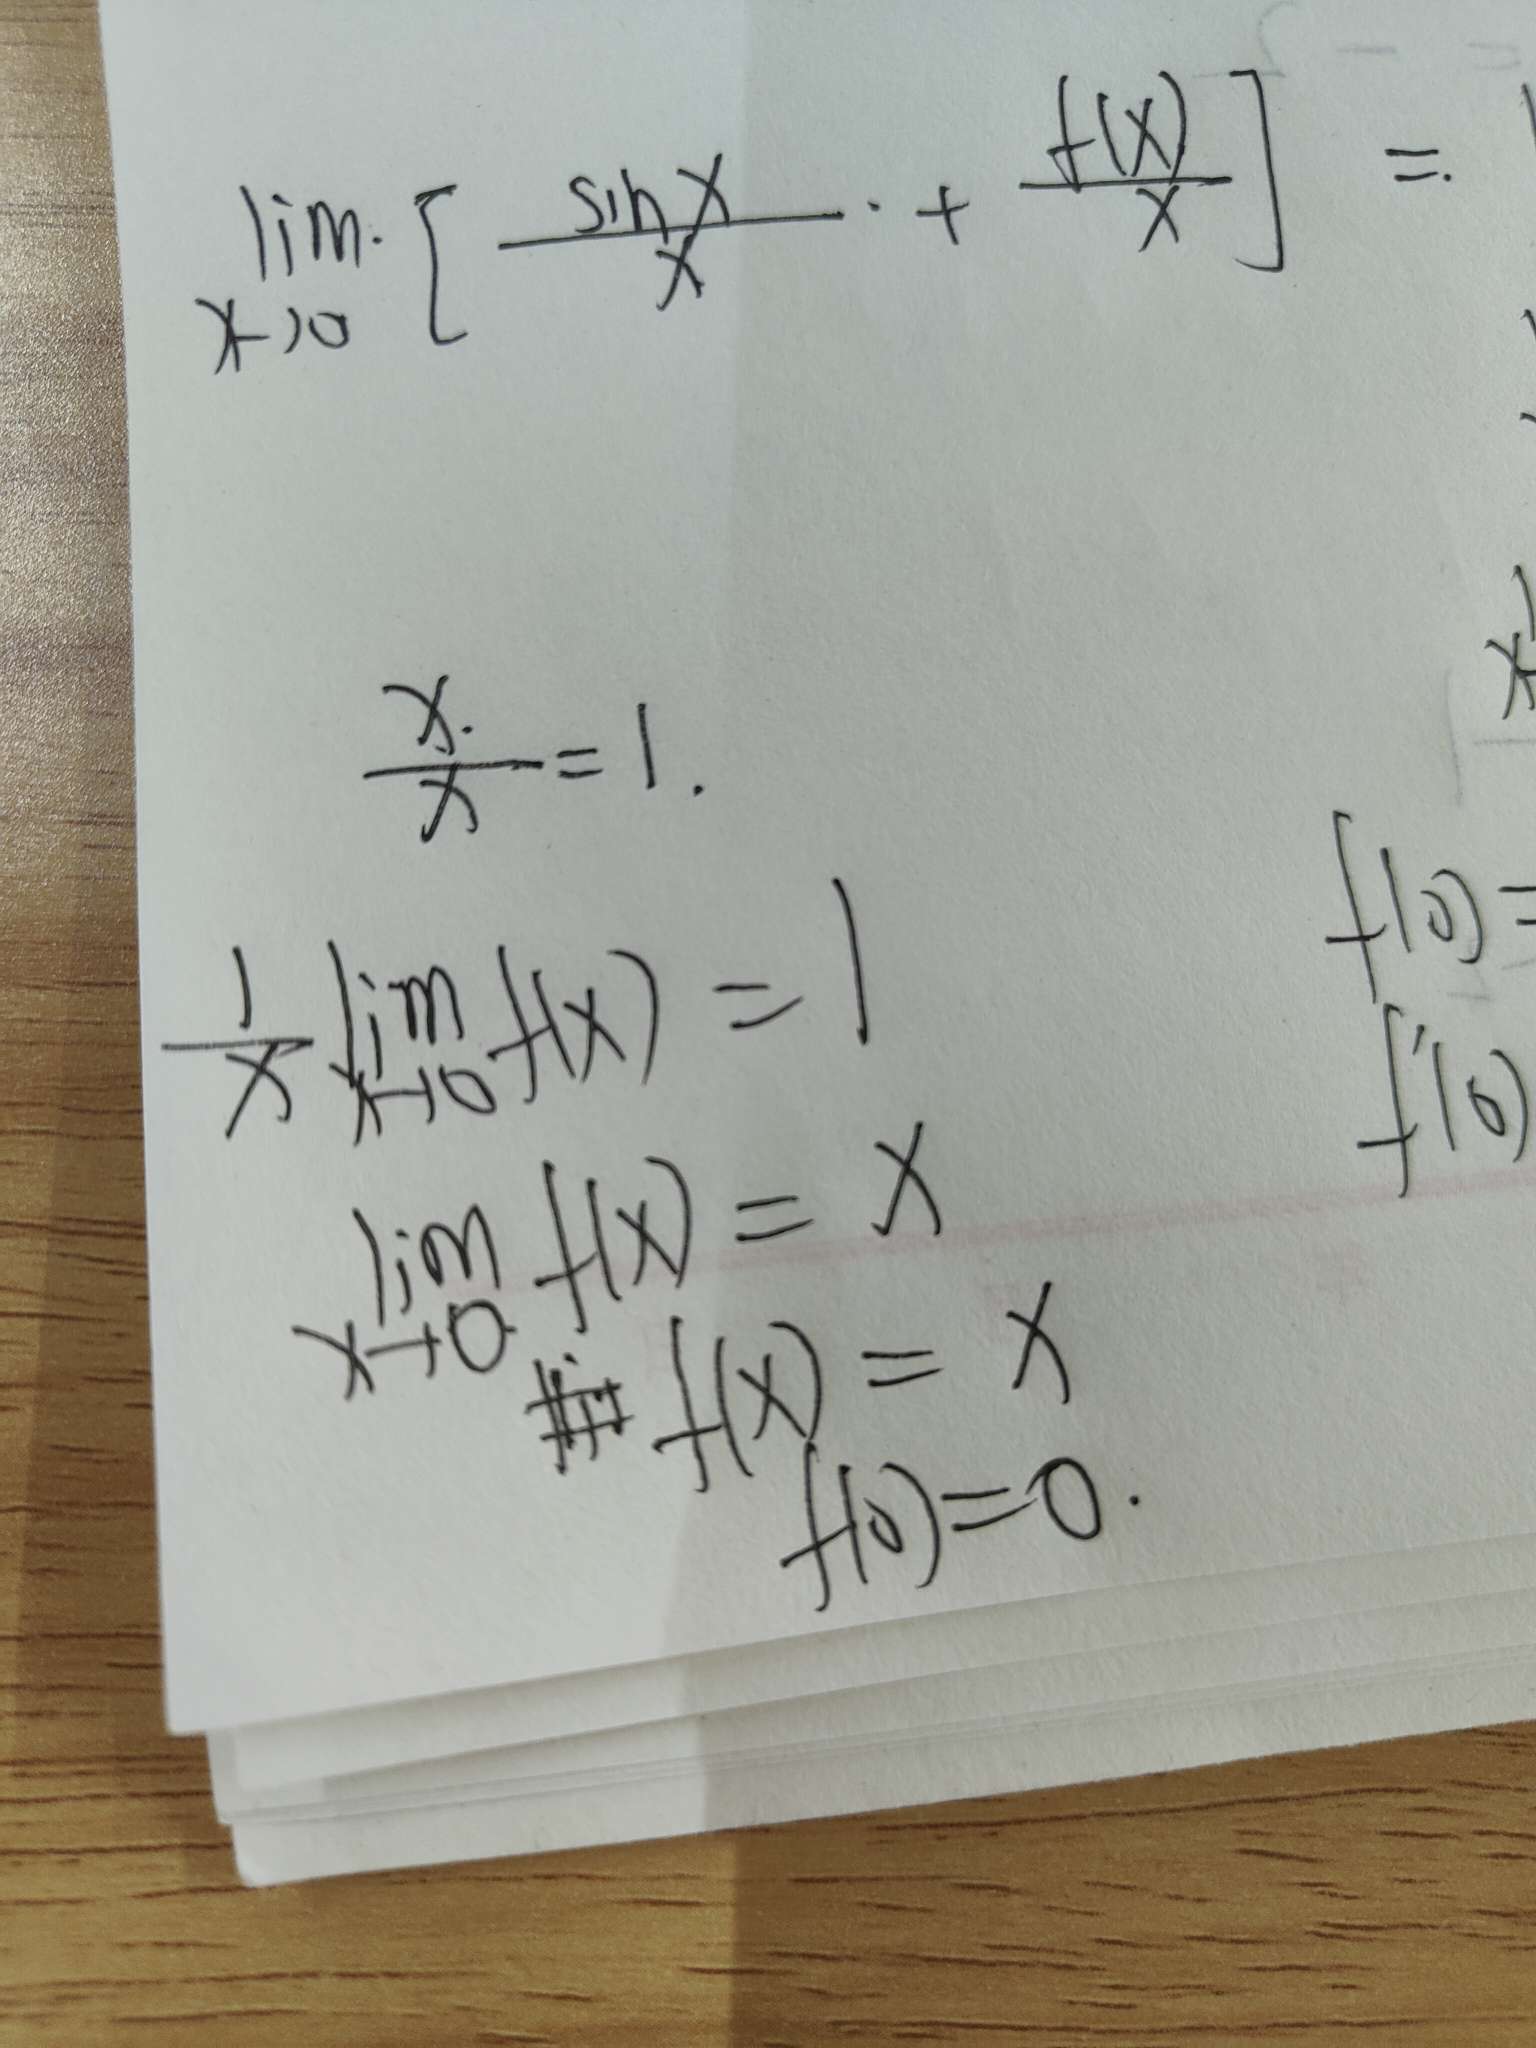 lim x→0 [ sin x / x · + f(x) / x ] =
x / x = 1.
1/x lim x→0 f(x) = 1
lim x→0 f(x) = x
f(x) = x
f(0) = 0.
f(0) =
f'(0)